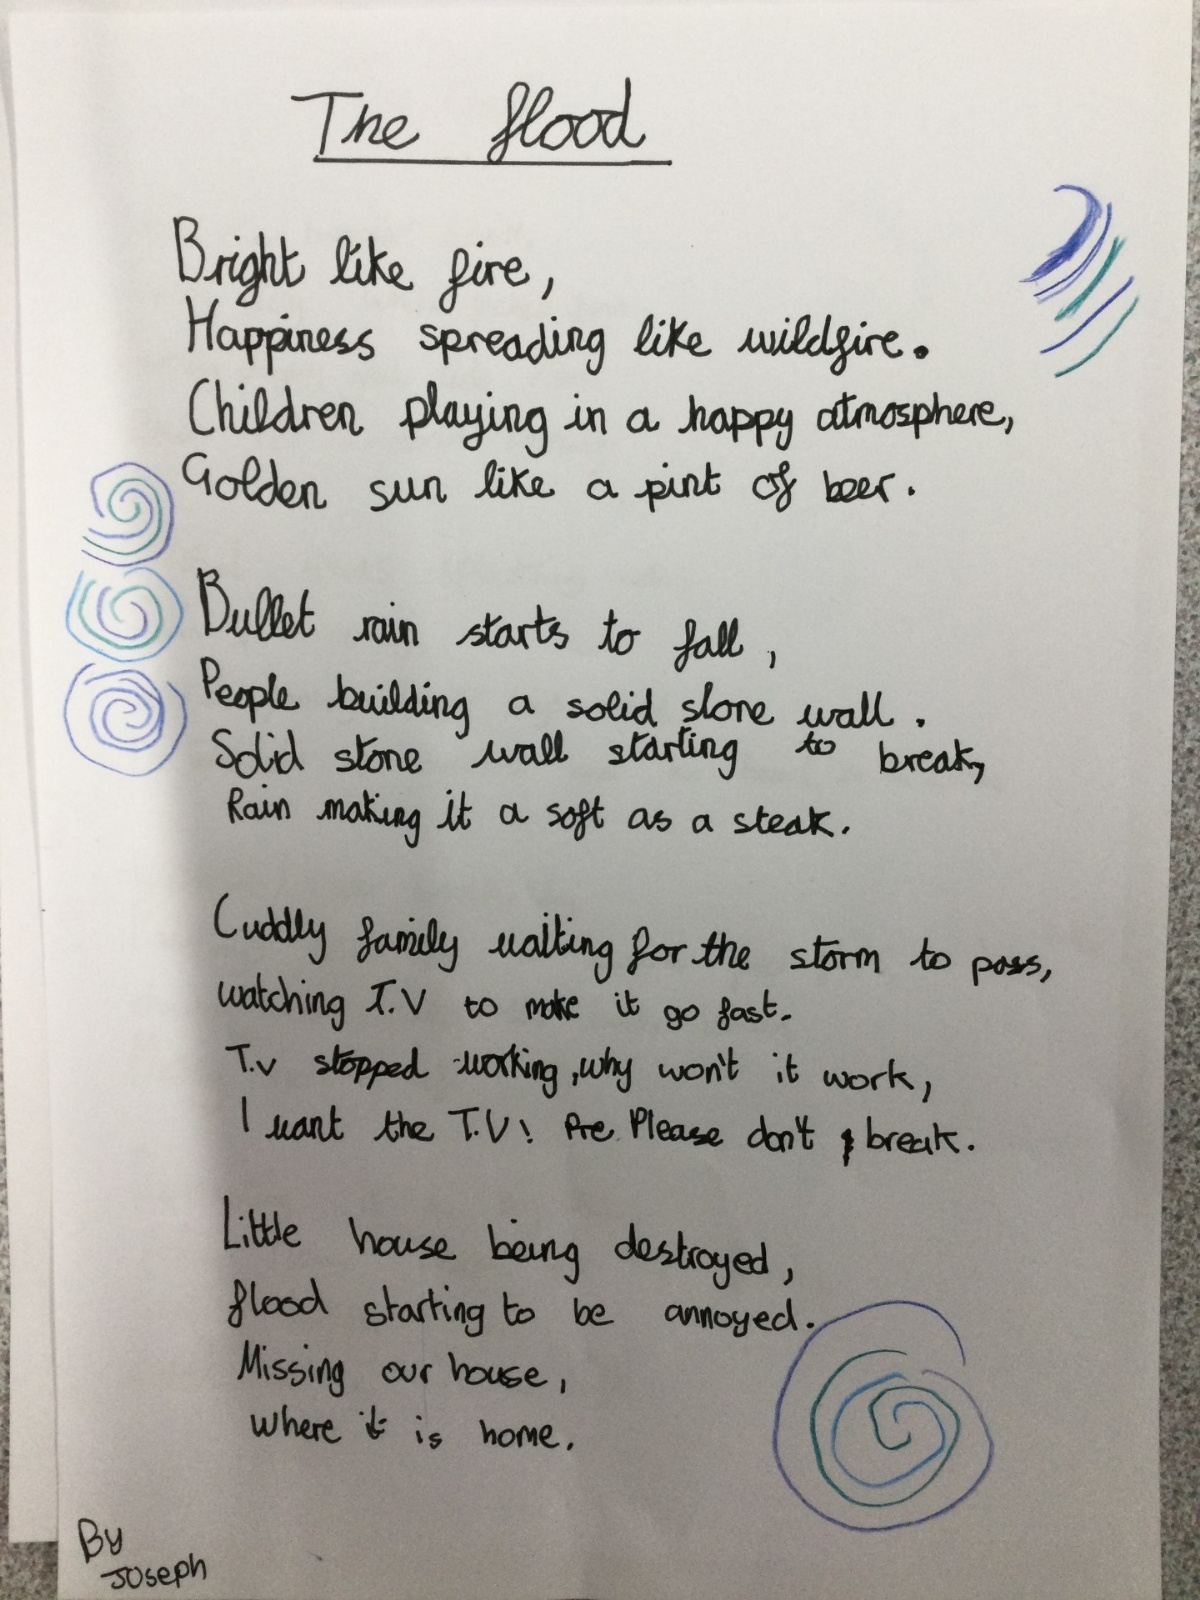 The flood
Bright like fire,
Happiness spreading like wildfire.
Children playing in a happy atmosphere,
Golden sun like a pint of beer.
Bullet rain starts to fall,
People building a solid stone wall.
Solid stone wall starting to break,
Rain making it a soft as a steak.
Cuddly family waiting for the storm to pass,
watching T.V to make it go fast.
T.v stopped working, why won't it work,
I want the T.V! Pre Please don't break.
Little house being destroyed,
flood starting to be annoyed.
Missing our house,
where it is home.
By
Joseph